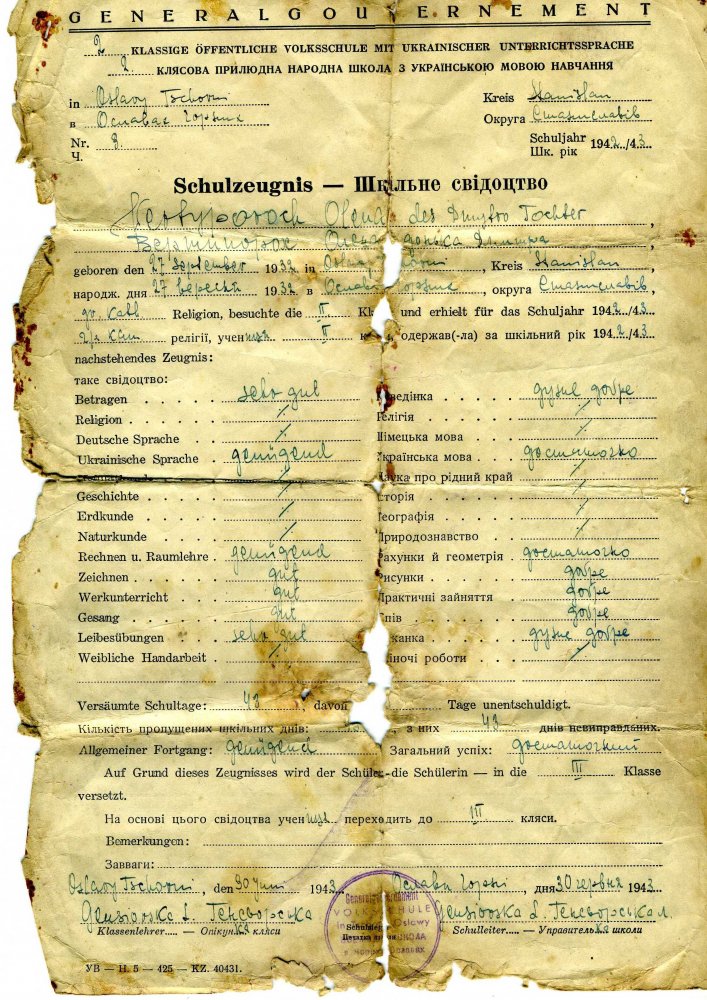 GENERALGOUVERNEMENT
2 KLASSIGE ÖFFENTLICHE VOLKSSCHULE MIT UKRAINISCHER UNTERRICHTSSPRACHE
2. КЛЯСОВА ПРИЛЮДНА НАРОДНА ШКОЛА З УКРАЇНСЬКОЮ МОВОЮ НАВЧАННЯ
in Oslavy Tschorni Kreis Stanislau
в Ославах Чорних Округа Станиславів
Nr. 8. Schuljahr 1942/43
Ч. Шк. рік
Schulzeugnis — Шкільне свідоцтво
Olena des Dmytro Tochter,
Олена донька Дмитра,
geboren den 27 September 1932 in Oslavy Tschorni, Kreis Stanislau,
народж. дня 27 вересня 1932 в Ославах Чорних, округа Станиславів,
gr. kath Religion, besuchte die II Kl und erhielt für das Schuljahr 1942/43
релігії, учениця II одержав(-ла) за шкільний рік 1942/43
nachstehendes Zeugnis:
таке свідоцтво:
Betragen sehr gut ведінка дуже добре
Religion / лігія /
Deutsche Sprache / імецька мова /
Ukrainische Sprache genügend країнська мова достаточно
/ аука про рідний край /
Geschichte / сторія /
Erdkunde / еографія /
Naturkunde / риродознавство /
Rechnen u. Raumlehre genügend ахунки й геометрія достаточно
Zeichnen gut исунки добре
Werkunterricht gut рактичні зайняття добре
Gesang gut пів добре
Leibesübungen sehr gut жанка дуже добре
Weibliche Handarbeit / іночі роботи /
Versäumte Schultage: 43, davon Tage unentschuldigt.
Кількість пропущених шкільних днів: з них 43 днів невиправданих.
Allgemeiner Fortgang: genügend Загальний успіх: достаточний
Auf Grund dieses Zeugnisses wird der Schüler-die Schülerin — in die III Klasse
versetzt.
На основі цього свідоцтва учениця переходить до III кляси.
Bemerkungen:
Завваги:
Oslavy Tschorni, den 30 Juni 1943 Ослави Чорні, дня 30 червня 1943
Generalgouvernement
VOLKSSCHULE
in Oslawy
Schulsiegel
Печатка школи
ШКОЛА
Klassenlehrer..... — Опікунка кляси Schulleiter..... — Управителька школи
УВ — H. 5 — 425 — KZ. 40431.